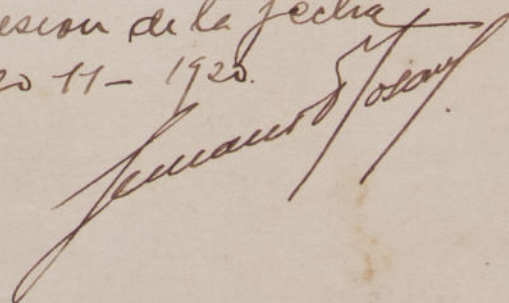 esion de la fecha
20 11 - 1920.